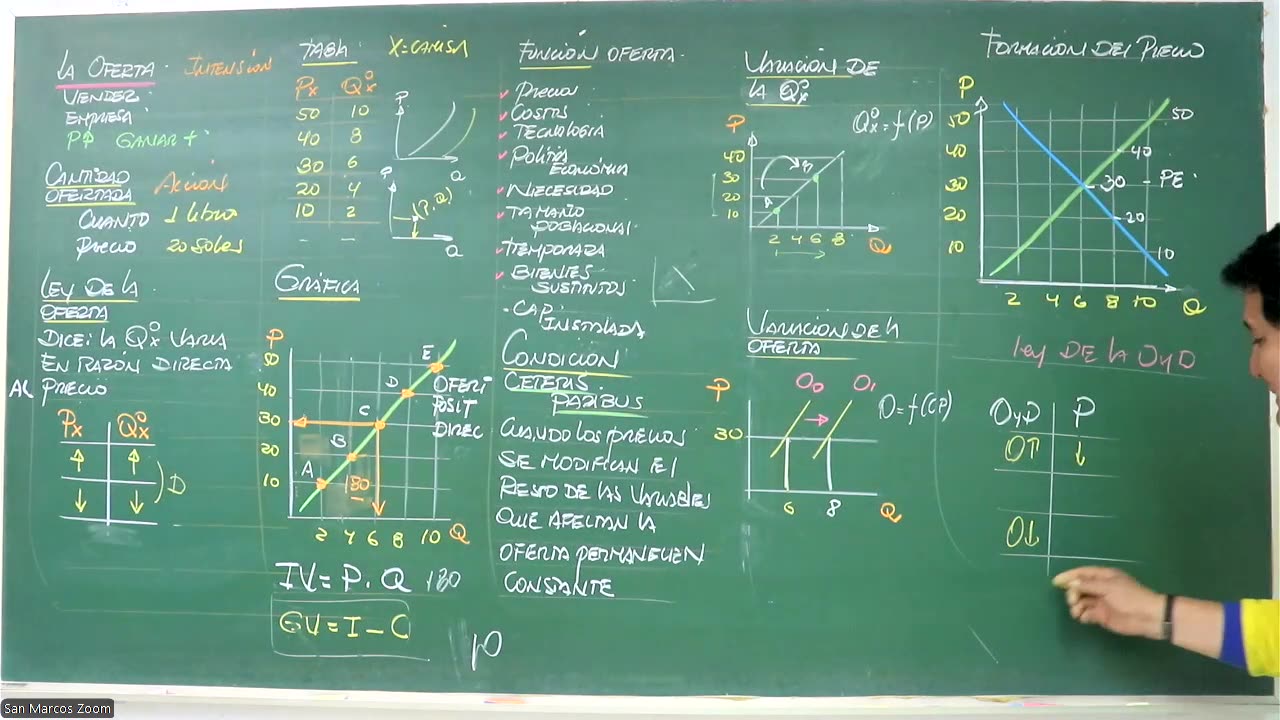 LA OFERTA. INTENSIÓN
VENDER
EMPRESA
P↑ GANAR +
CANTIDAD
OFERTADA ACCIÓN
CUANTO 1 libro
PRECIO 20 SOLES
LEY DE LA
OFERTA
DICE: LA Qxº VARIA
EN RAZÓN DIRECTA
AL PRECIO
Px Qxº
↑ ↑
↓ ↓
D
TABLA X=CAMISA
Px Qxº
50 10
40 8
30 6
20 4
10 2
– –
P
Q
P
(P,Q)
Q
GRÁFICA
P
50
40
30
20
10
A B C D E
180
OFERT
POSIT
DIREC
2 4 6 8 10 Q
IV = P.Q 180
GV = I – C
10
FUNCIÓN OFERTA.
PRECIO
COSTOS
TECNOLOGIA
POLITIC
ECONÓMICA
NECESIDAD
TAMAÑO
POBLACIONAL
TEMPORADA
BIENES
SUSTITUTOS
CAP. INSTALADA
CONDICION
CETERIS
PARIBUS
CUANDO LOS PRECIOS
SE MODIFICAN EL
RESTO DE LAS VARIABLES
QUE AFECTAN LA
OFERTA PERMANECEN
CONSTANTE
VARIACIÓN DE
LA Qxº
Qxº = f(P)
P
40
30
20
10
A B
2 4 6 8 Q
VARIACION DE LA
OFERTA
P O0 O1 O = f(CP)
30
6 8 Q
FORMACIÓN DEL PRECIO
P
50 50
40 40
30 30 PE
20 20
10 10
2 4 6 8 10 Q
LEY DE LA O y D
O y D P
O↑ ↓
O↓
San Marcos Zoom